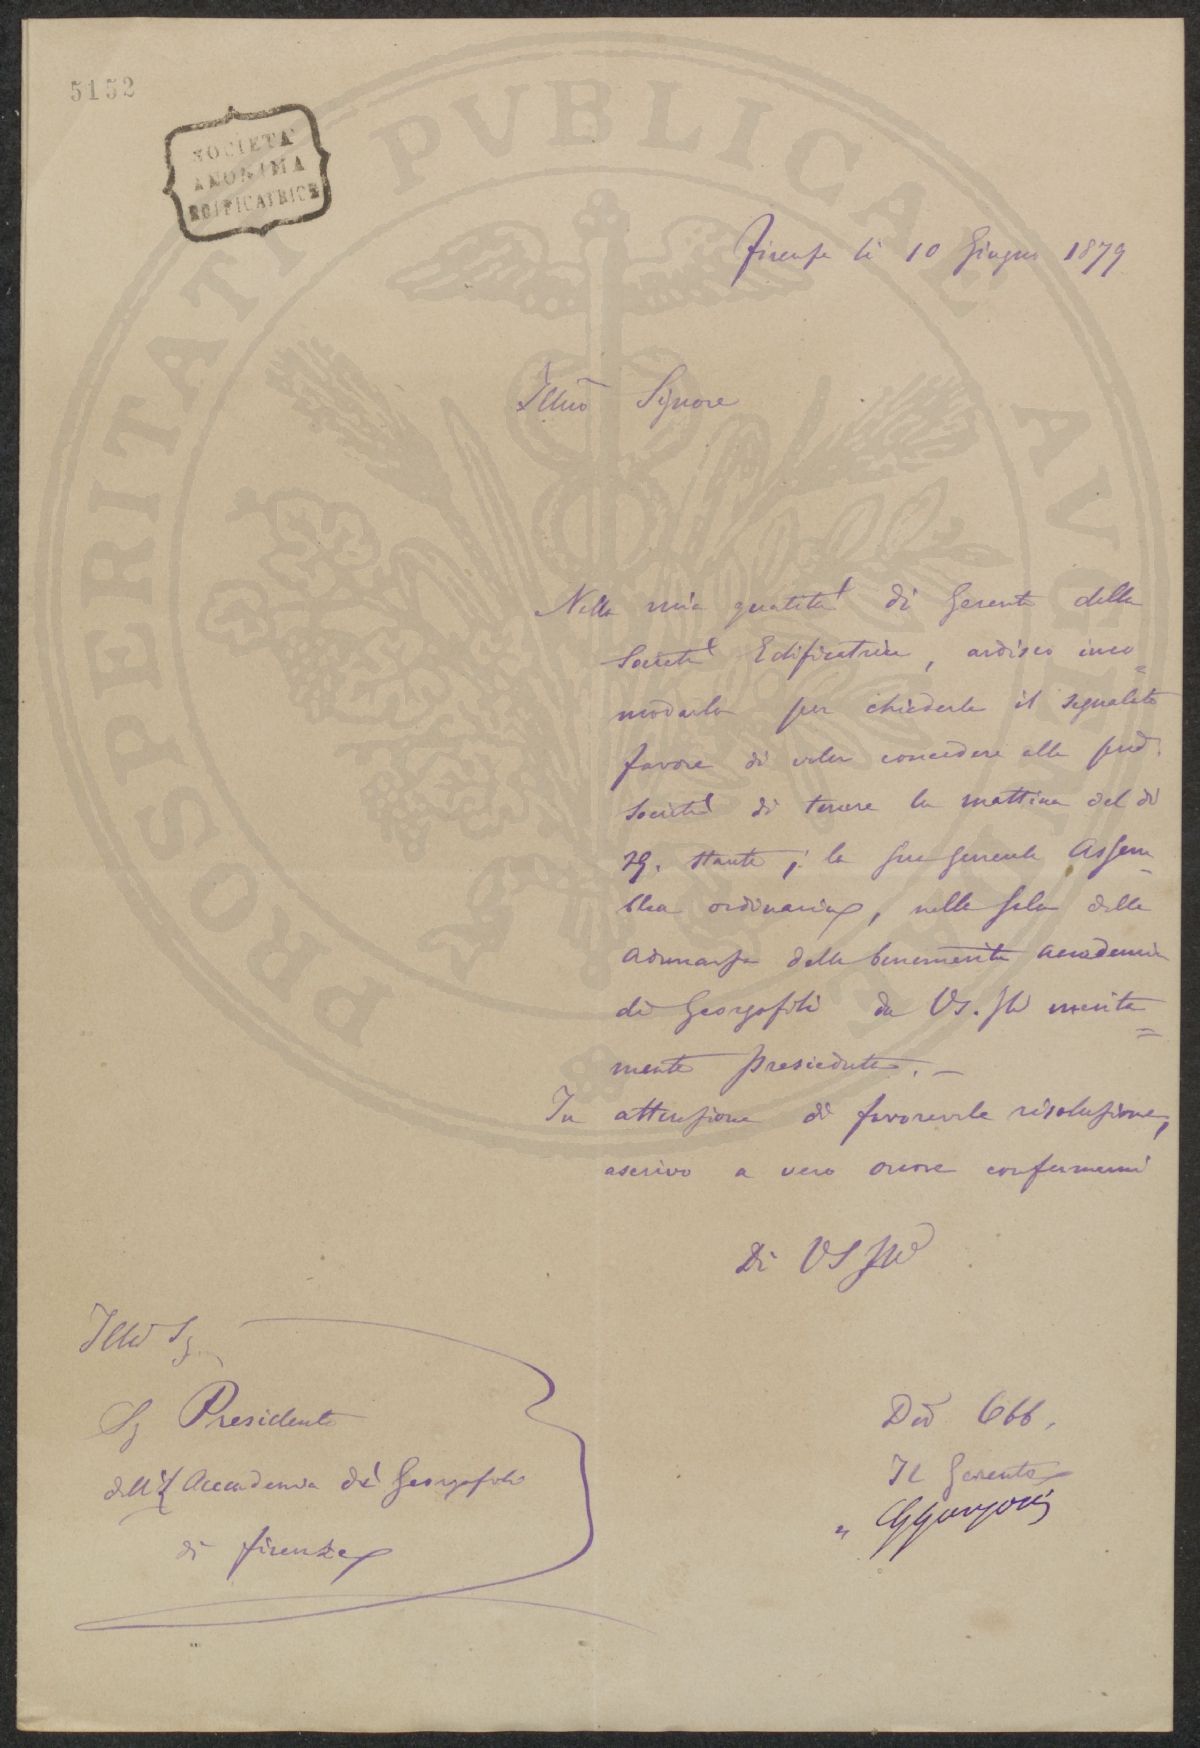 5152
SOCIETA'
ANONIMA
EDIFICATRICE
PROSPERITATI PVBLICAE AVGENDAE
Firenze li 10 Giugno 1879
Illmo Signore
Nella mia qualità di Gerente della
Società Edificatrice, ardisco inco=
modarla per chiederle il segnalato
favore di voler concedere alla pred.
Società di tenere la mattina del dì
29. stante, la sua generale Assem-
blea ordinaria, nella sala delle
adunanze della benemerita Accademia
di Georgofili da VS. Illma merita=
mente presieduta. —
In attenzione di favorevole risoluzione,
ascrivo a vero onore confermarmi
Di VS Illma
Illmo Sig.
Sig Presidente
dell'Accademia dei Georgofili
di Firenze
Dmo Obb.
Il Gerente